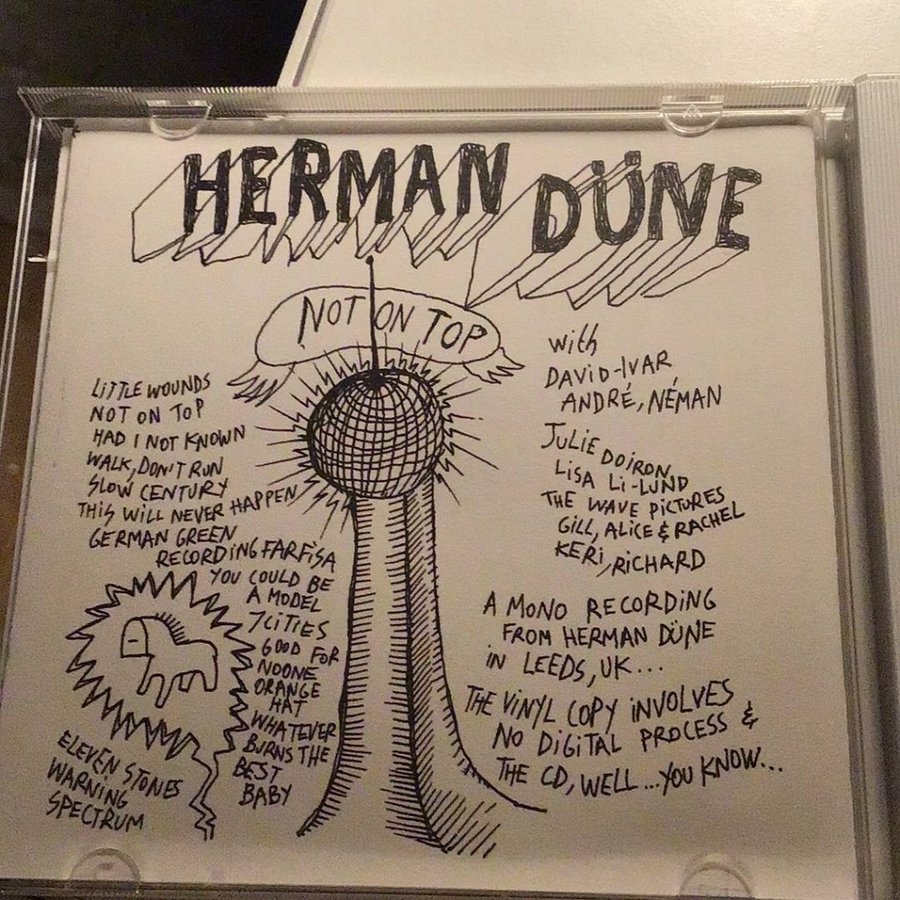 HERMAN DÜNE
NOT ON TOP
LITTLE WOUNDS
NOT ON TOP
HAD I NOT KNOWN
WALK, DON'T RUN
SLOW CENTURY
THIS WILL NEVER HAPPEN
GERMAN GREEN
RECORDING FARFISA
YOU COULD BE
A MODEL
7 CITIES
GOOD FOR
NOONE
ORANGE
HAT
WHATEVER
BURNS THE
BEST
BABY
ELEVEN STONES
WARNING
SPECTRUM
with
DAVID-IVAR
ANDRÉ, NÉMAN
JULIE DOIRON,
LISA LI-LUND
THE WAVE PICTURES
GILL, ALICE & RACHEL
KERI, RICHARD
A MONO RECORDING
FROM HERMAN DÜNE
IN LEEDS, UK...
THE VINYL COPY INVOLVES
NO DIGITAL PROCESS &
THE CD, WELL...YOU KNOW...